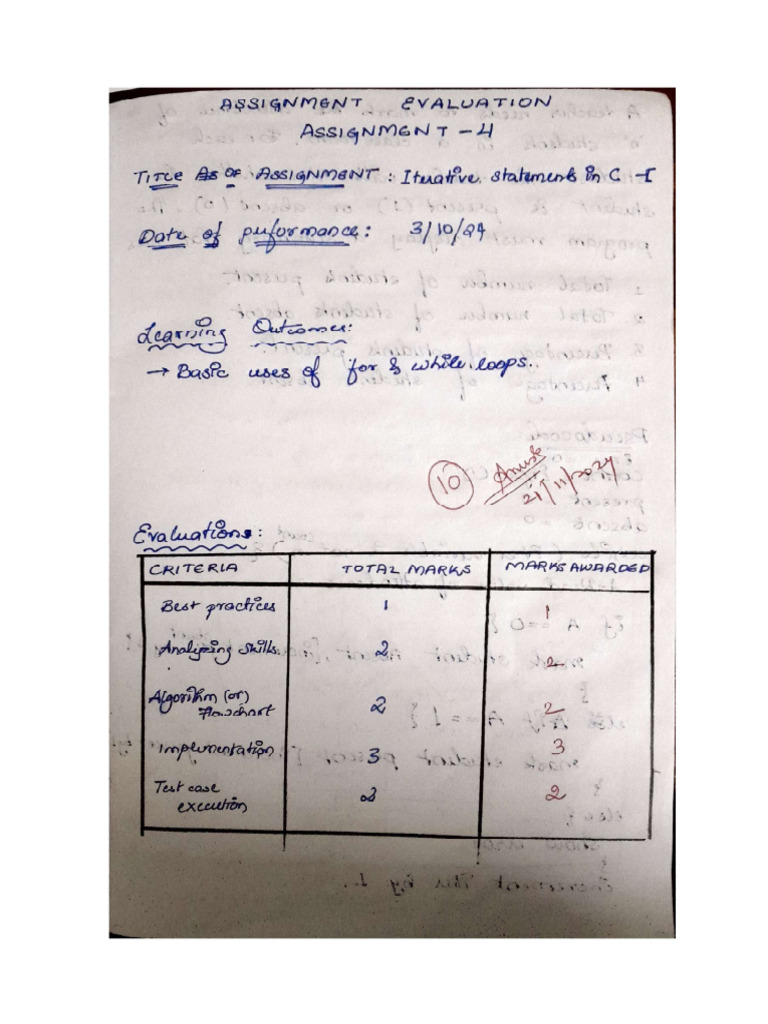 ASSIGNMENT EVALUATION
ASSIGNMENT - 4
TITLE OF ASSIGNMENT : Iterative statements in C - I
Date of performance : 3/10/24
Learning Outcomes:
→ Basic uses of for & while loops..
10
21/11/2024
Evaluations:
CRITERIA TOTAL MARKS MARKS AWARDED
Best practices 1 1
Analyzing skills 2 2
Algorithm (or) 2 2
Flowchart
Implementation 3 3
Test case 2 2
execution